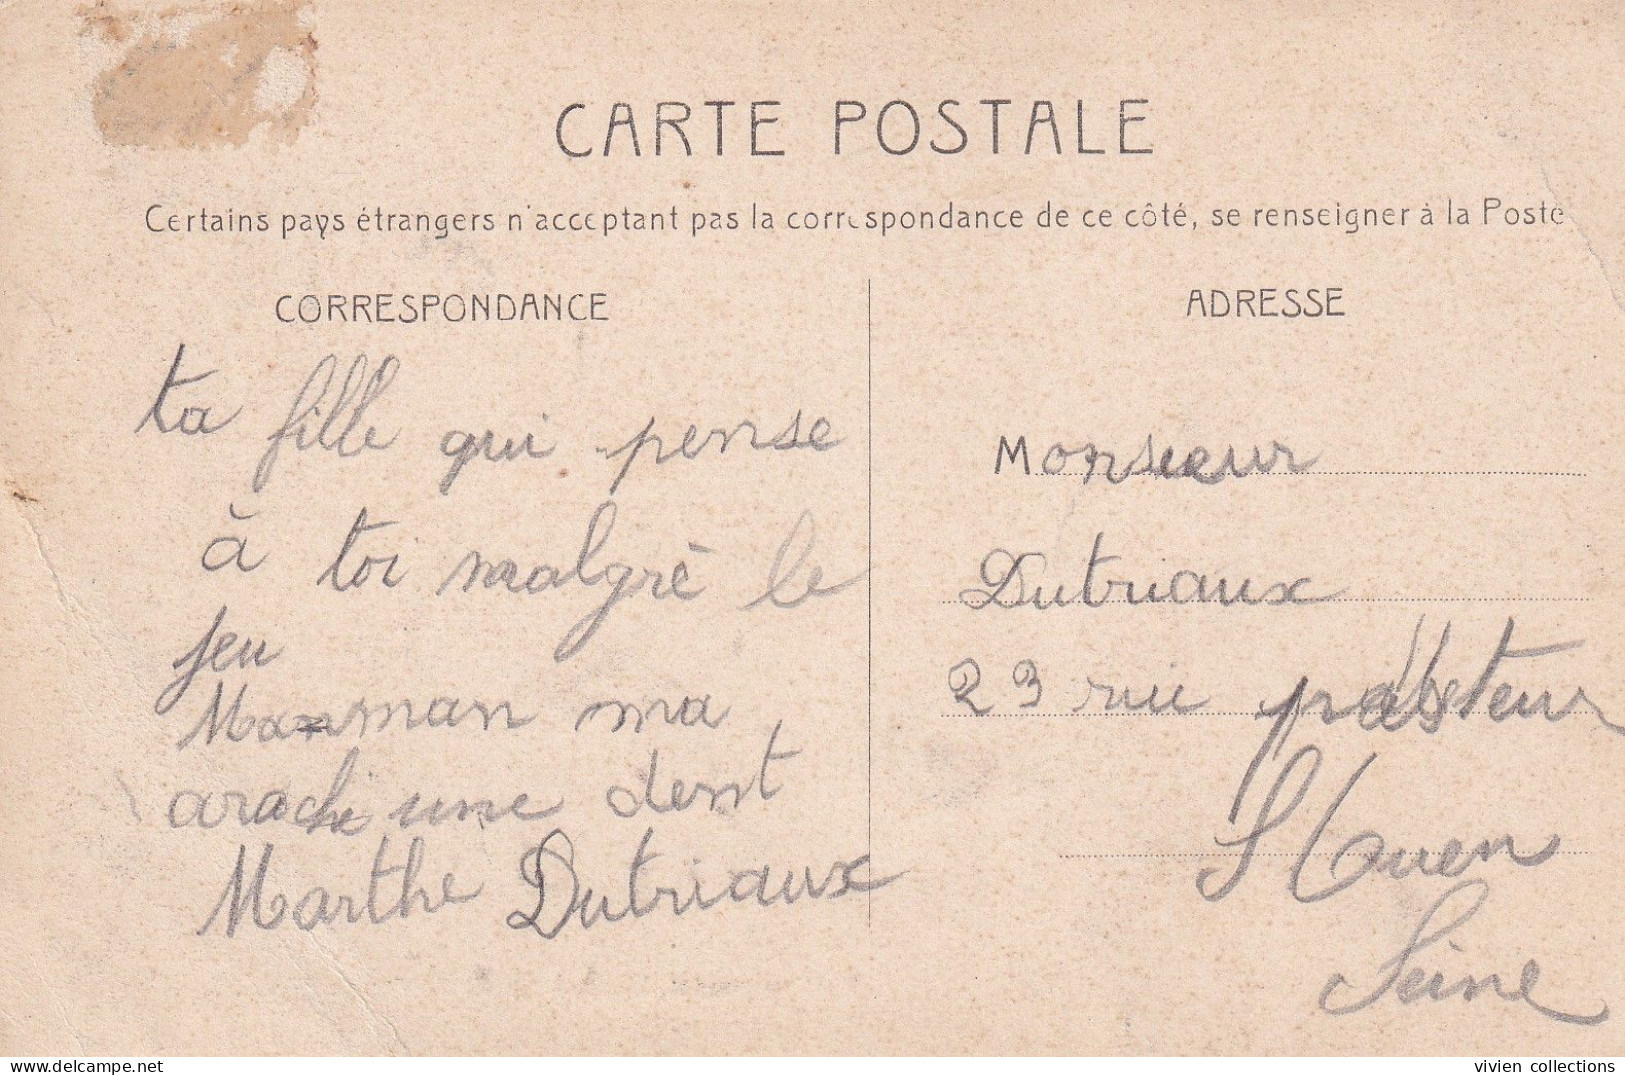 CARTE POSTALE
Certains pays étrangers n'acceptant pas la correspondance de ce côté, se renseigner à la Poste
CORRESPONDANCE
ta fille qui pense
à toi malgrè le
jeu
Maman ma
arachi une dent
Marthe Dutriaux
ADRESSE
Monsieur
Dutriaux
23 rue pasteur
St Ouen
Seine
delcampe.net
vivien collections